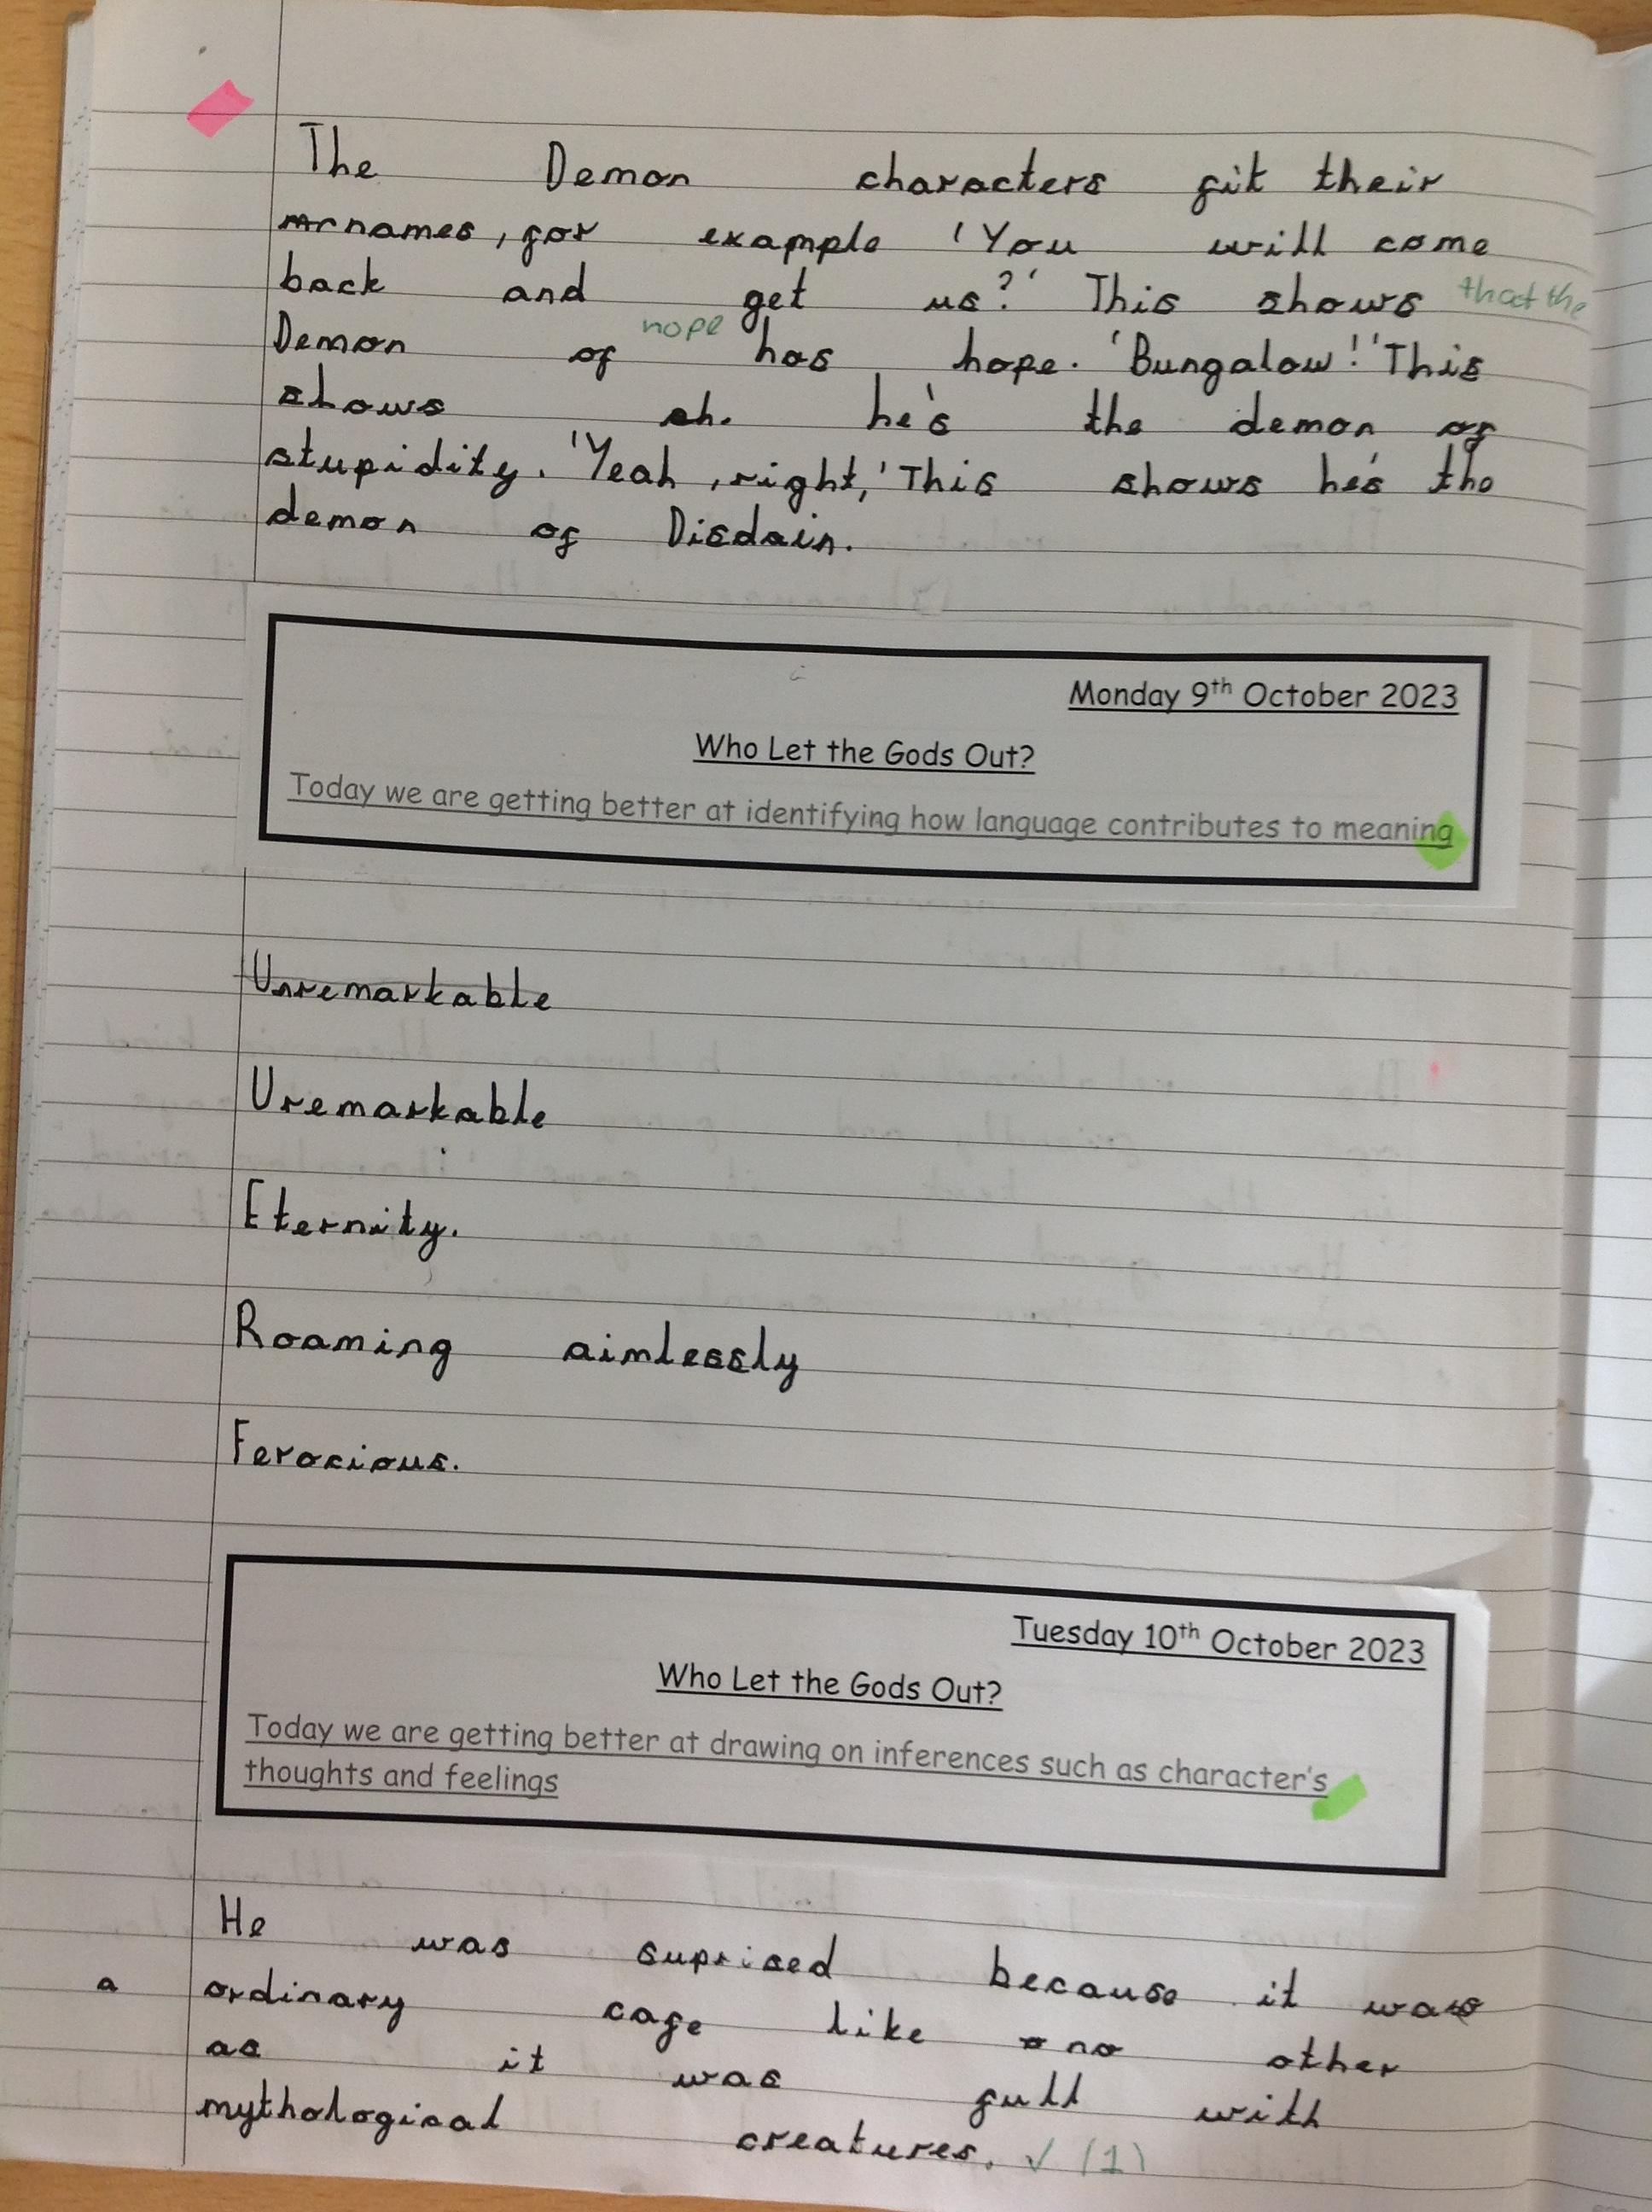 The Demon characters fit their
mrnames, for example 'You will come
back and get us?' This shows that the
Demon of nope has hope. 'Bungalow!' This
shows sh. he's the demon of
stupidity. 'Yeah, right,' This shows he's the
demon of Disdain.
Monday 9th October 2023
Who Let the Gods Out?
Today we are getting better at identifying how language contributes to meaning
Unremarkable
Uremarkable
Eternity.
Roaming aimlessly
Ferocious.
Tuesday 10th October 2023
Who Let the Gods Out?
Today we are getting better at drawing on inferences such as character's
thoughts and feelings
He was suprised because it was
a ordinary cafe like no other
as it was full with
mythological creatures. ✓ (1)